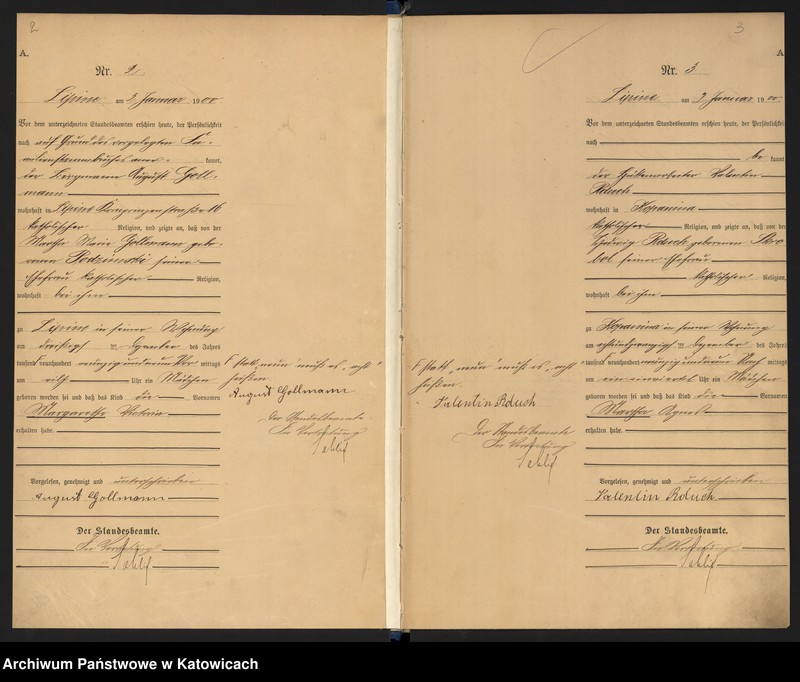 2
A.
Nr. 2.
Lipine am 3. Januar 1900
Vor dem unterzeichneten Standesbeamten erschien heute, der Persönlichkeit
nach auf Grund des vorgelegten Fa-
milienstammbuches aner- kannt,
der Bergmann August Goll-
mann
wohnhaft in Lipine Kronprinzenstraße 16
katholischer Religion, und zeigte an, daß von der
Martha Maria Gollmann gebo-
renen Podzimski seiner
Ehefrau katholischer Religion,
wohnhaft bei ihm
zu Lipine in seiner Wohnung
am dreißigs ten Dezember des Jahres
tausend neunhundert neunzig und neun Vor mittags
um Uhr ein Mädchen
geboren worden sei und daß das Kind die Vornamen
Margarethe Victoria
erhalten habe.
Vorgelesen, genehmigt und unterschrieben
August Gollmann
Der Standesbeamte.
In Vertretung
statt "neun" muß es "acht"
heißen.
August Gollmann
Der Standesbeamte
In Vertretung
3
A
Nr. 3
Lipine am 3. Januar 1900.
Vor dem unterzeichneten Standesbeamten erschien heute, der Persönlichkeit
nach
be kannt
der Hüttenarbeiter Valentin
Rduch
wohnhaft in Kopanina
katholischer Religion, und zeigte an, daß von der
Hedwig Rduch geborenen Skro
bol seiner Ehefrau
katholischer Religion,
wohnhaft bei ihm
zu Kopanina in seiner Wohnung
am achtundzwanzigs ten Dezember des Jahres
tausend neunhundert neunzig und neun Nach mittags
um ein einviertel Uhr ein Mädchen
geboren worden sei und daß das Kind die Vornamen
Martha Agnes
erhalten habe.
Vorgelesen, genehmigt und unterschrieben
Valentin Rduch
Der Standesbeamte.
In Vertretung
statt "neun" muß es "acht"
heißen.
Valentin Rduch
Der Standesbeamte
In Vertretung
Archiwum Państwowe w Katowicach